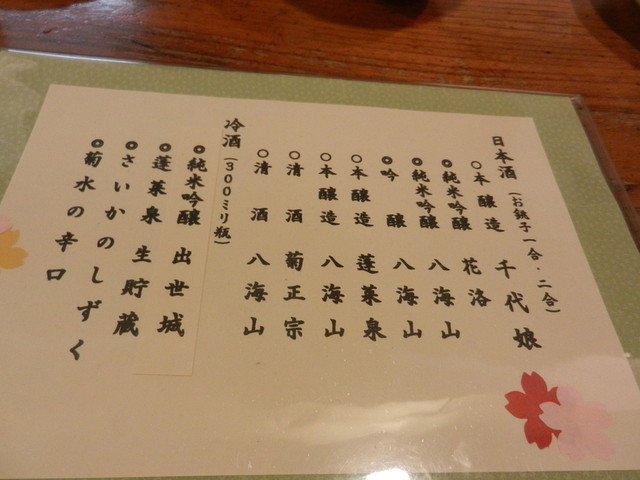 日本酒(お銚子一合・二合)
○本醸造 千代娘
◉純米吟醸 花洛
◉純米吟醸 八海山
◉吟醸 八海山
○本醸造 蓬莱泉
○本醸造 八海山
○清酒 菊正宗
○清酒 八海山
冷酒(300ミリ瓶)
◉純米吟醸 出世城
◉蓬莱泉 生貯蔵
◉さいかのしずく
◉菊水の辛口